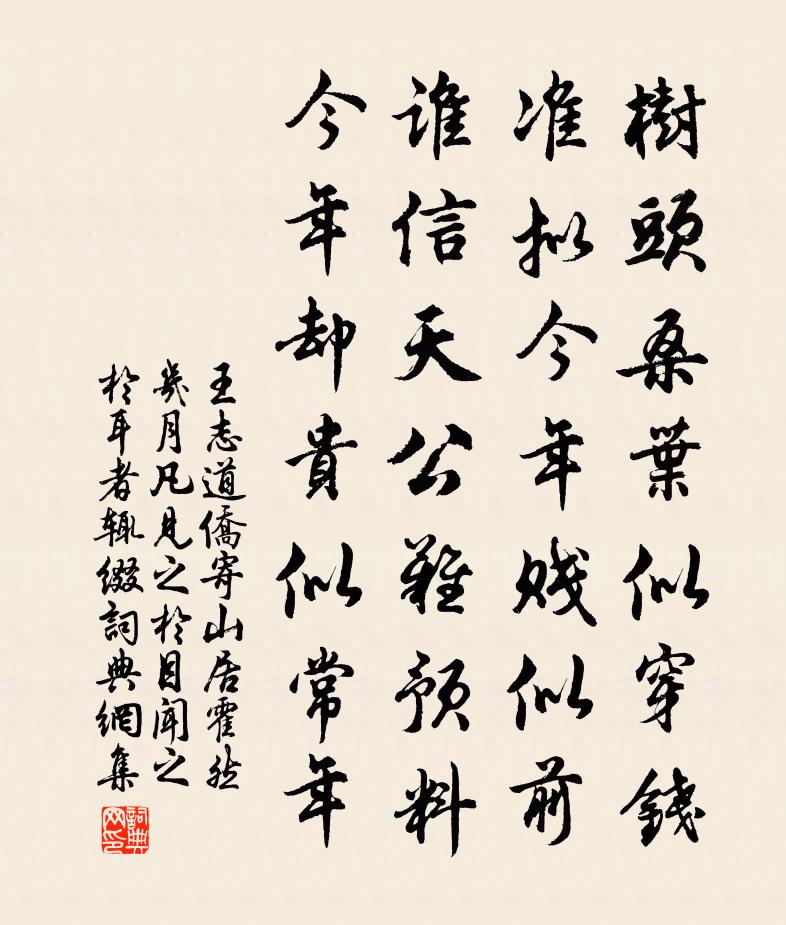 樹頭桑葉似穿錢
准拟今年賤似前
誰信天公難預料
今年却貴似常年
王志道僑寄山居霍然
幾月凡見之於目聞之
於耳者輒綴詞典網集
詞典
网印